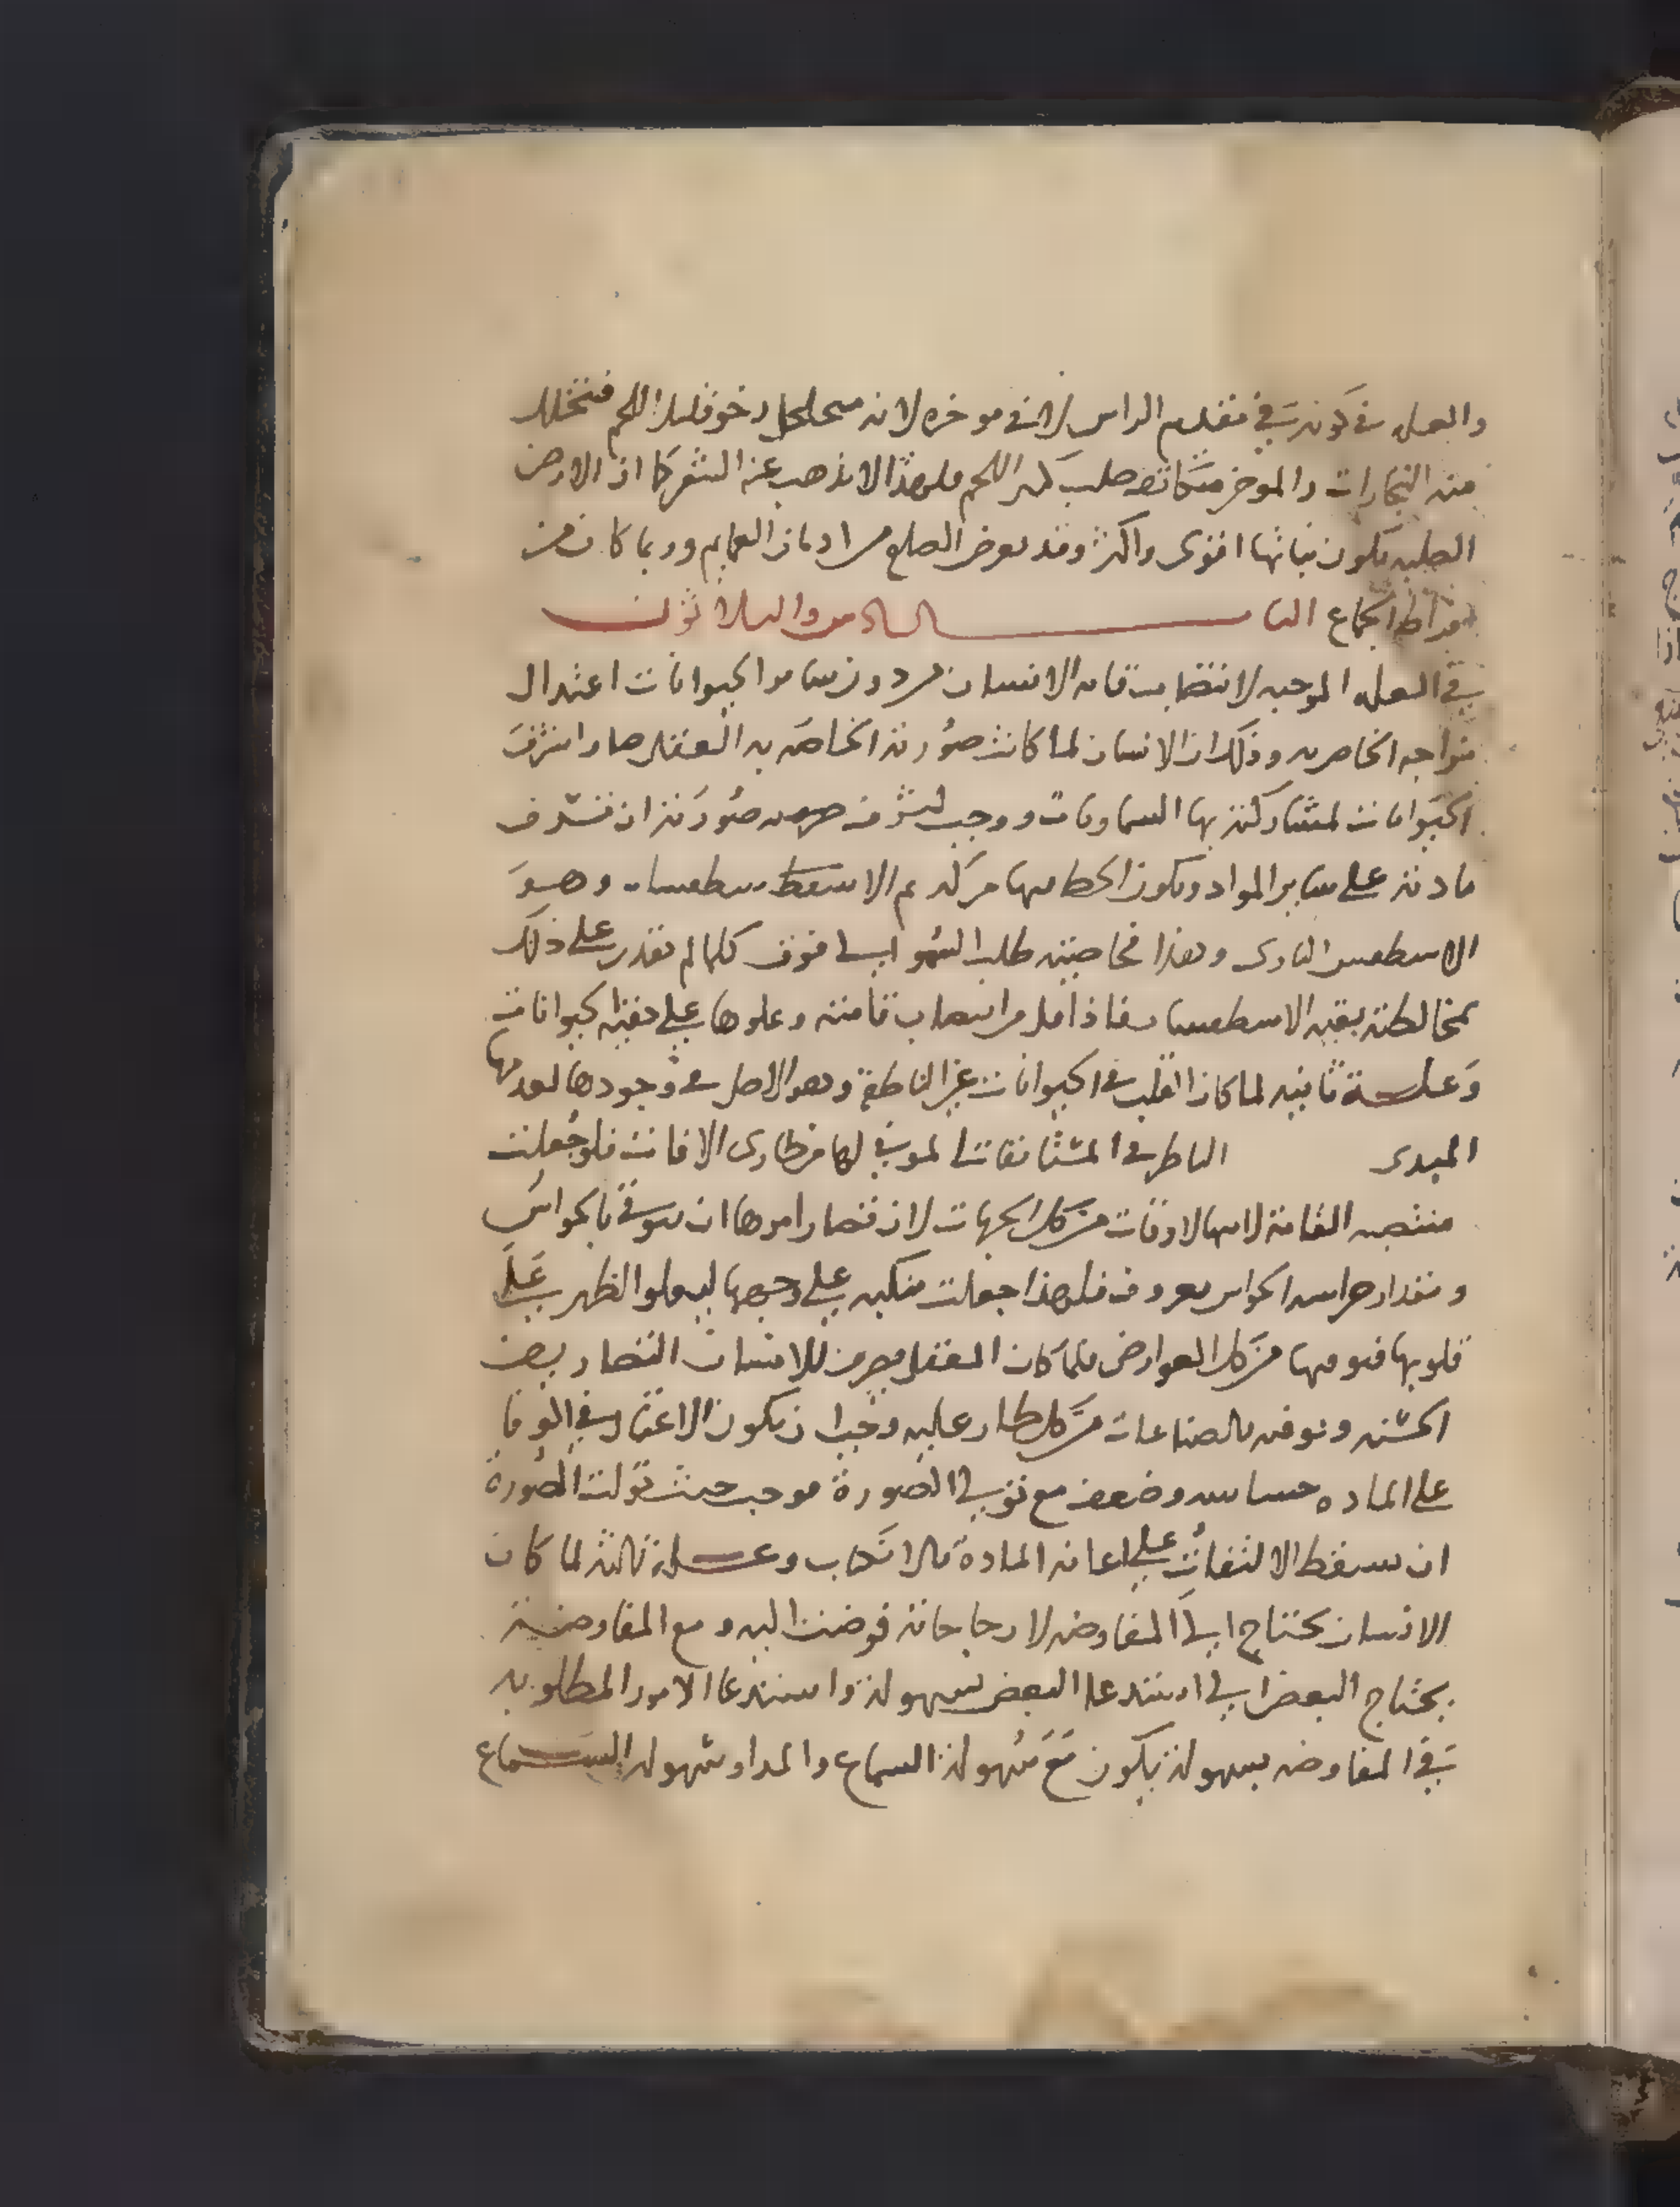 والعله في كونه في مقدم الراس لا في موخره لانه متخلخل رخو قليل اللحم فتتخلل
منه البخارات والموخر متكاثف صلب كثير اللحم فلهذا لا يذهب عنه الشعر كما ان الارض
الصلبه يكون نباتها اقوى واكثر وقد يعرض الصلع من ادمان العمايم وربما كان من
افراط الجماع الباب السادس والثلاثون
في العله الموجبه لانتصاب قامه الانسان من دون ساير الحيوانات اعتدال
مزاجه الخاص به وذلك ان الانسان لما كانت صورته الخاصه به العقل صار اشرف
الحيوانات لمشاركته بها السماويات ووجب لشرف صورته ان تشرف
مادته على ساير المواد ويكون الحظ منها مركله م الاسطقسات وهو
الاسطقس الناري وهذا فخاصيته طلب السمو الى فوق كلما لم يقدر على ذلك
بمخالطته بقيه الاسطقسات فاذا قلد من انتصاب قامته وعلوها على بقيه الحيوانات
وعلة ثانيه لما كان القلب في الحيوانات غير الناطقة وهو الاصل في وجودها لعدمها
المبدى الناطر في المشتا لها من طارى الافات فلو جعلت
منتصبه القامة لاتتها الافات من كل الجهات لان قصار امرها ان تتوقى بالحواس
ومقدار حراسه الحواس معروف فلهذا جعلت منكبه على وجهها ليعلو الظهر على
قلوبها فيوقيها من كل العوارض فلما كان العقل للانسان
الحسنه وتوقيه بالصناعات من كل طار عليه وجب ان يكون الاعتماد في الوقا
على الماده وضعف مع قوى الصورة موجب حيث قويت الصورة
ان سقط الالتفات على اعانه المادة بالانكباب وعلة ثالثه لما كان
الانسان يحتاج الى المفاوضه لارحا حاته فوضت اليه ومع المفاوضة
يحتاج البعض الى استدعا البعض بسهولة واستدعا الامور المطلوبه
في المفاوضه بسهولة يكون مع سهولة السماع والمدا وسهوله السماع